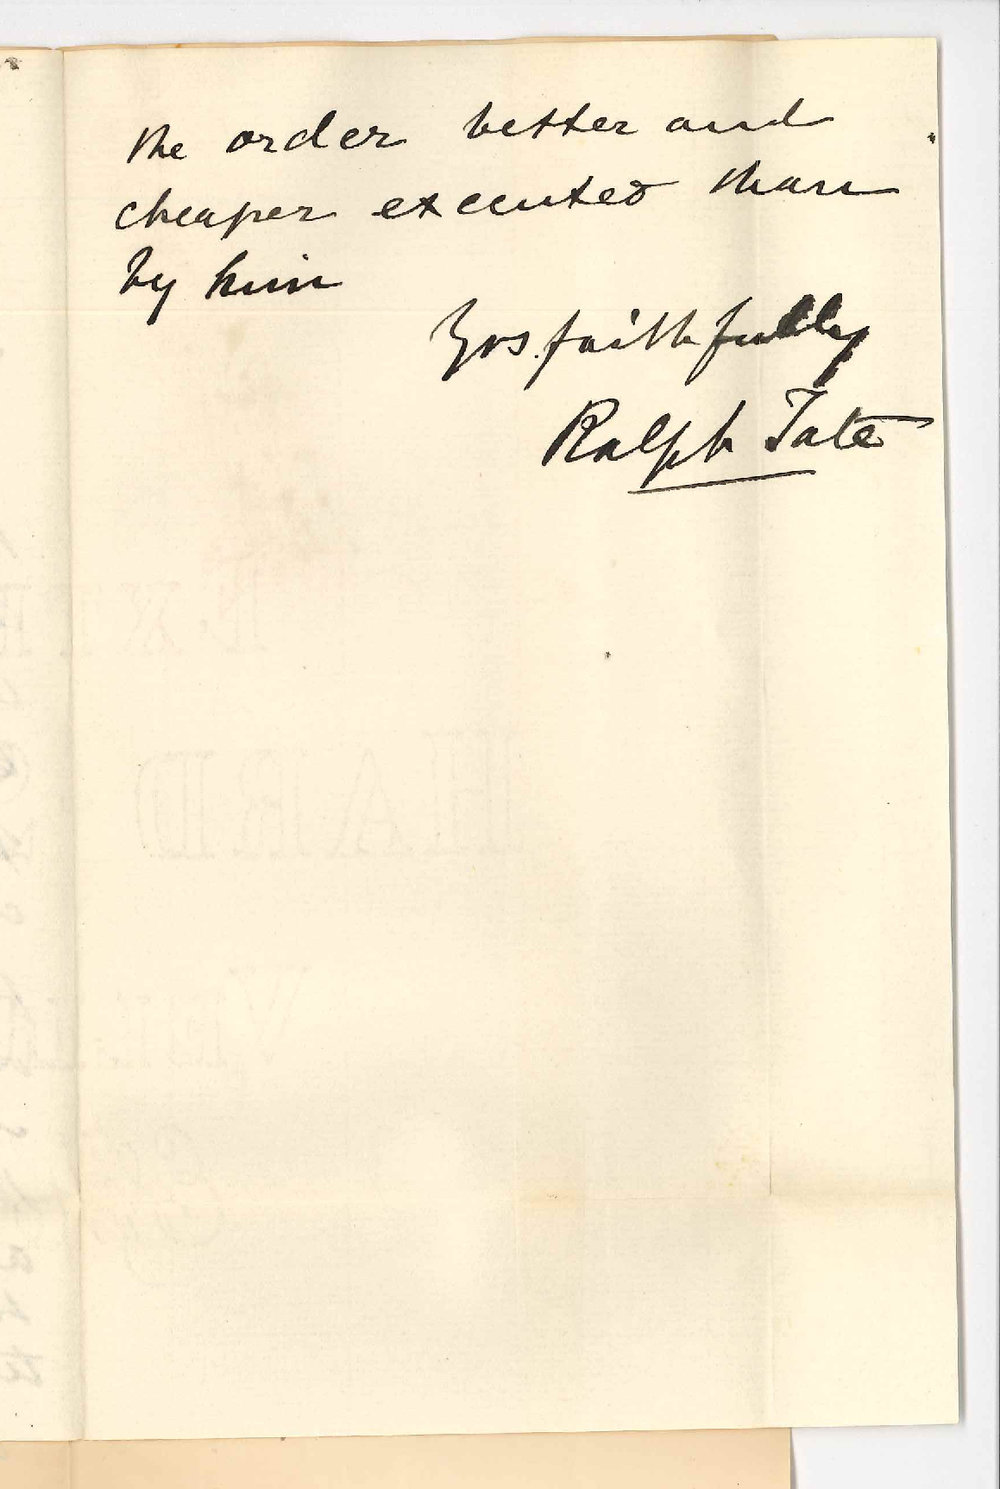 the order better and
cheaper executed than
by him
Yrs. faithfully
Ralph Tate